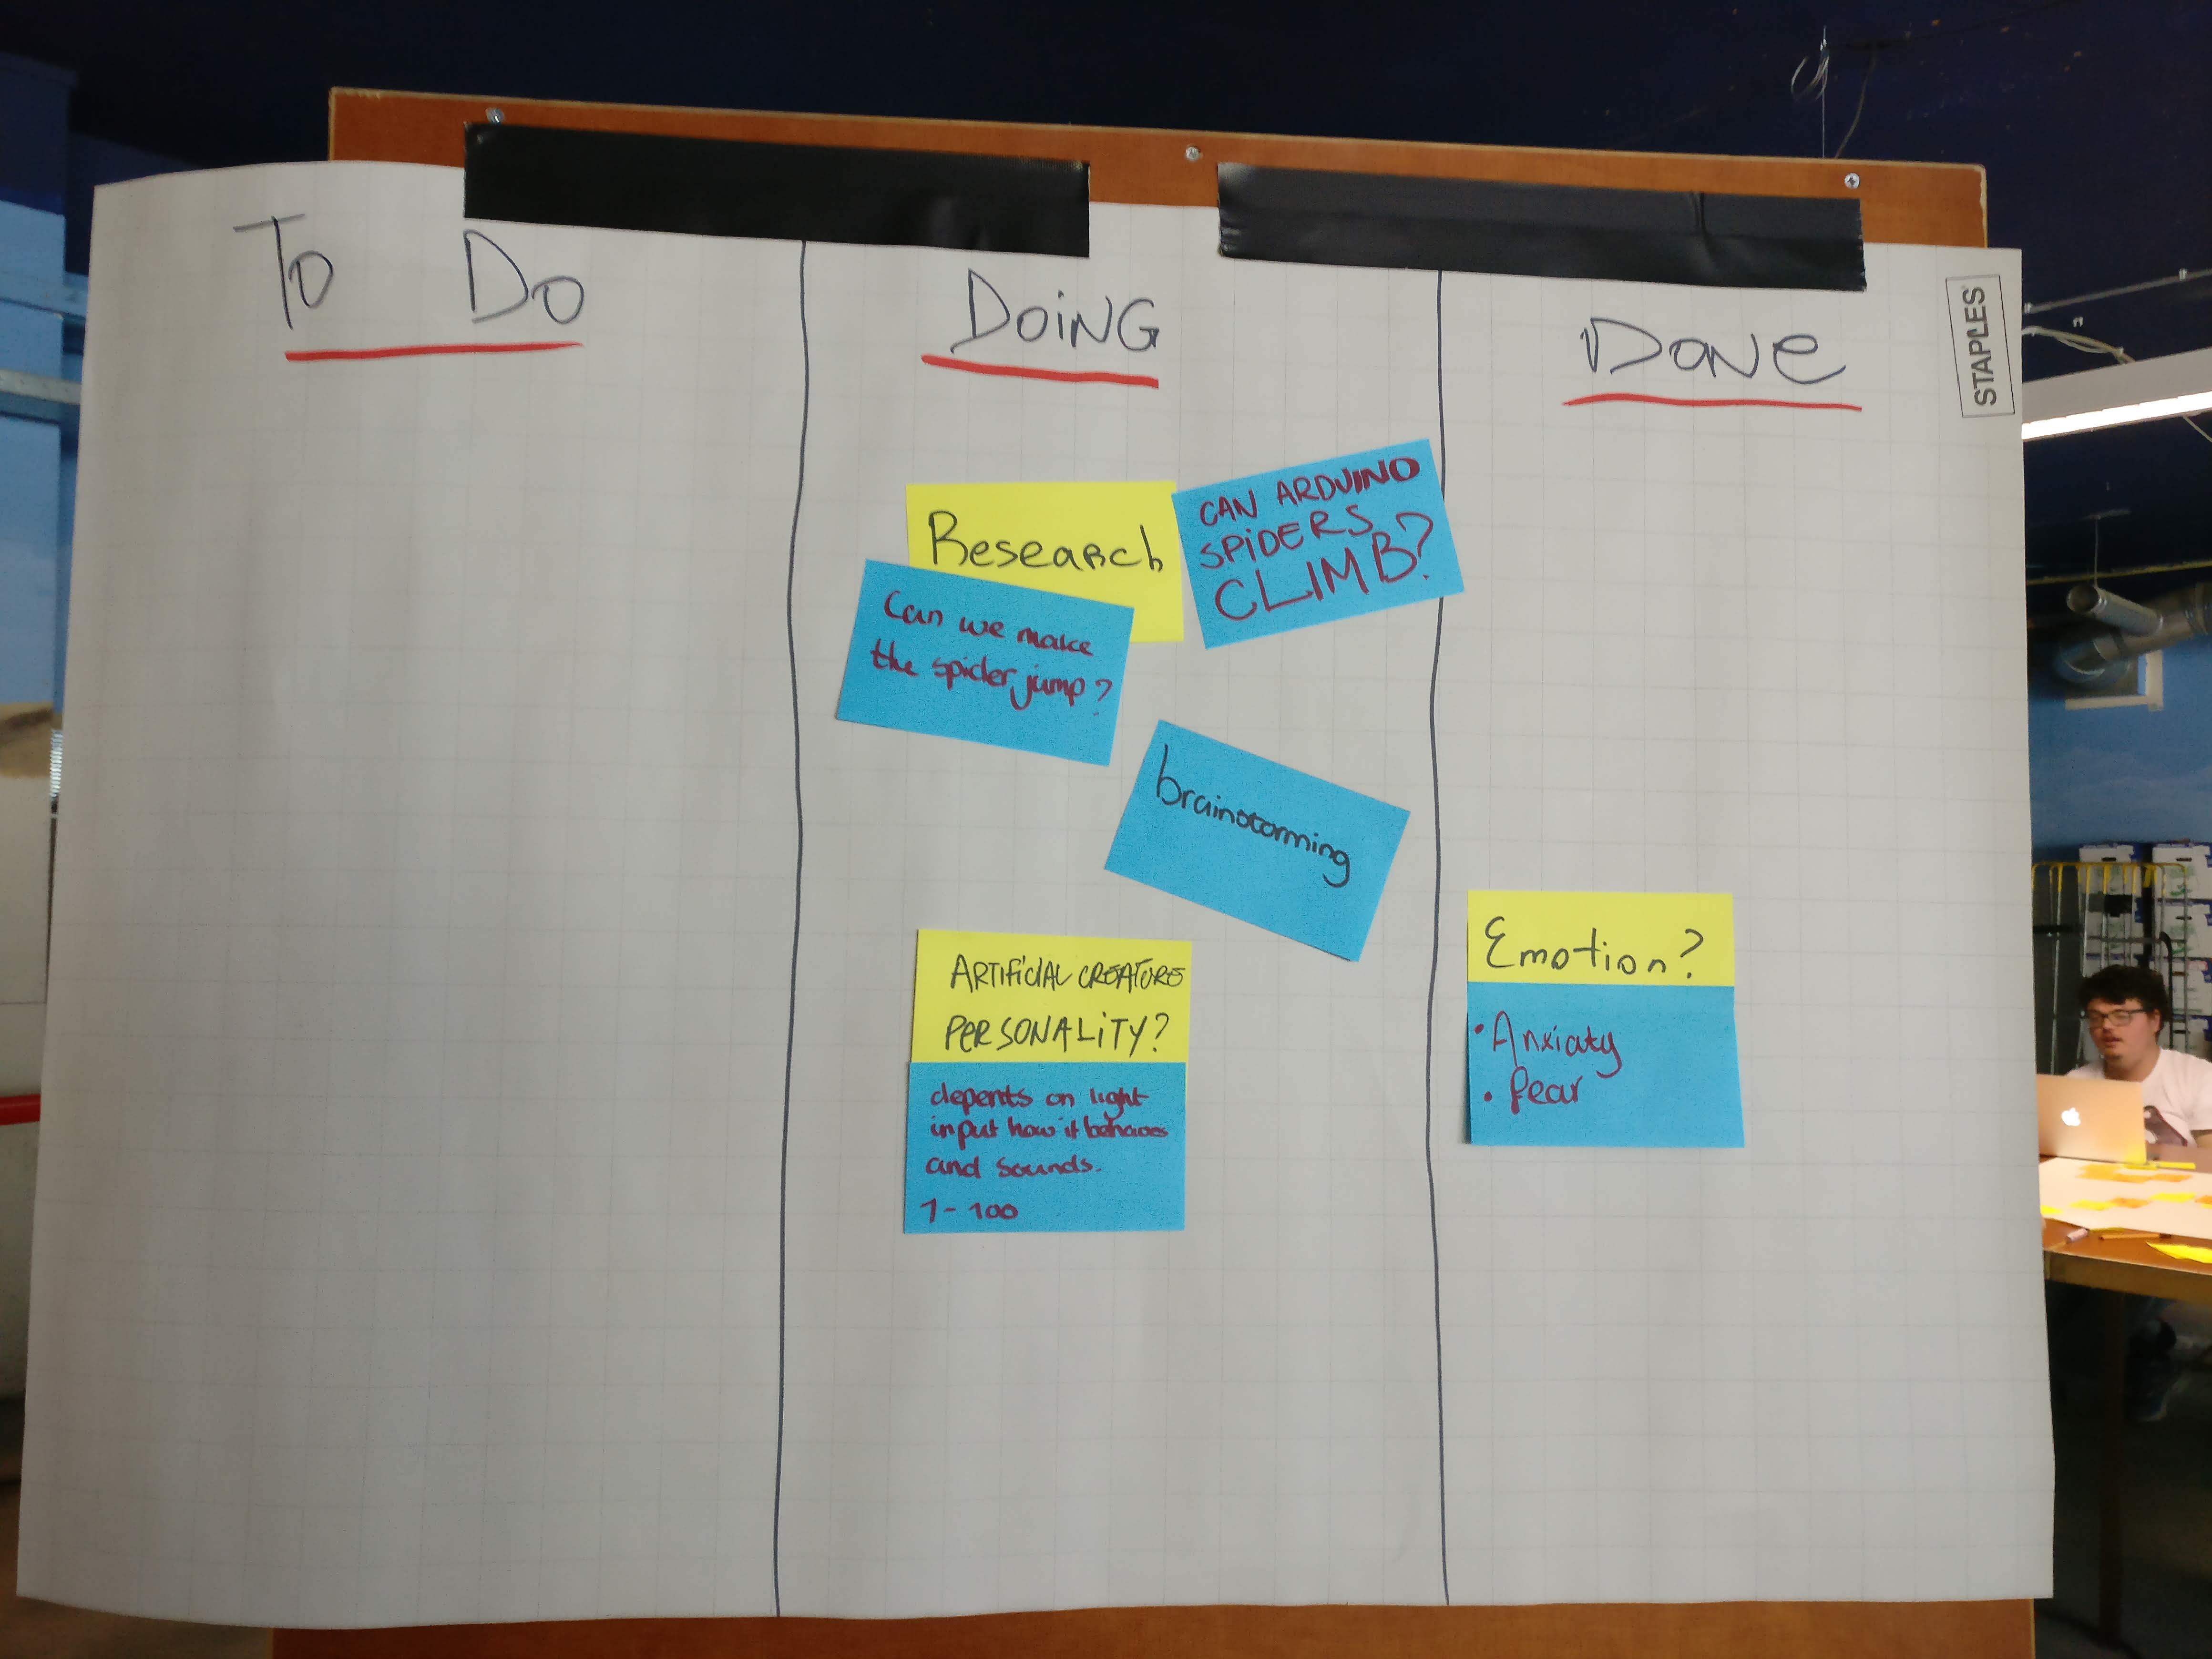 To Do
DoiNG
DoNe
STAPLES
Research
CAN ARDUINO
SPiDERS
CLIMB?
Can we make
the spider jump?
brainstorming
ARTIFICIAL CREATURE
PERSONALiTY?
depents on light
input how it behaves
and sounds.
1-100
Emotion?
• Anxiaty
• fear